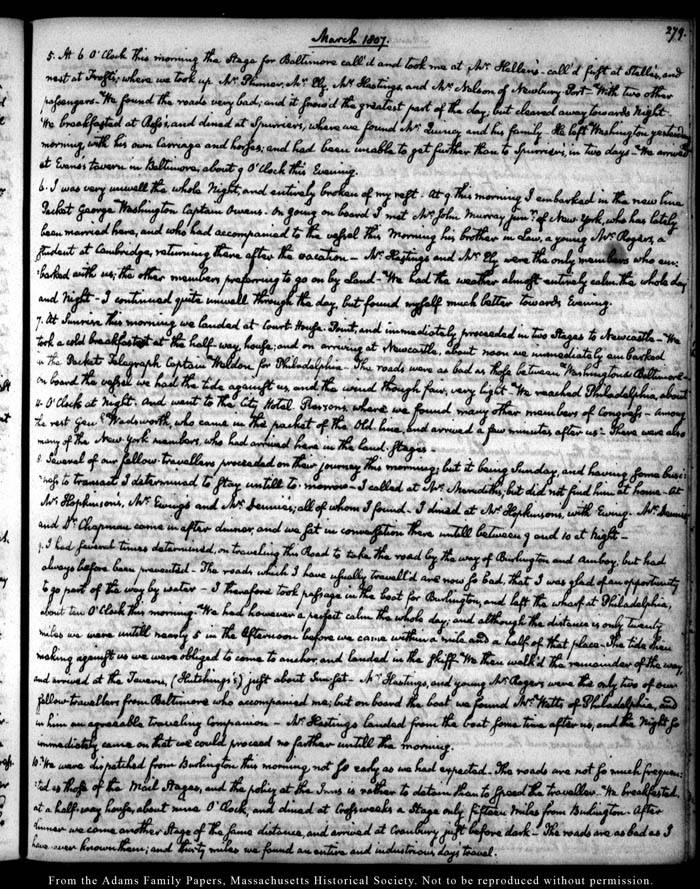 March 1807.
279.
5. At 6 O'Clock this morning the Stage for Baltimore call'd and took me at Mr. Hellen's - call'd first at Stelle's, and
next at Frost's, where we took up Mr. Plumer, Mr. Ely, Mr. Hastings, and Mr. Nelson of Newbury Port - With two other
passengers - We found the roads very bad; and it snow'd the greatest part of the day, but cleared away towards Night -
We breakfasted at Ross's, and dined at Spurrier's, where we found Mr. Quincy and his family - He left Washington yesterday
morning, with his own Carriage and horses; and had been unable to get further than to Spurrier's, in two days - We arrived
at Evans's tavern in Baltimore, about 9 O'Clock this Evening.
6. I was very unwell the whole Night, and entirely broken of my rest. At 9 this morning I embarked in the new line
Packet George Washington Captain Owens. On going on board I met Mr. John Murray junr. of New York, who has lately
been married here, and who had accompanied to the vessel this Morning his brother in Law, a young Mr. Rogers, a
student at Cambridge, returning there after the vacation - Mr. Hastings and Mr. Ely were the only members who em-
barked with us; the other members preferring to go on by Land - We had the weather almost entirely calm the whole day
and Night - I continued quite unwell through the day, but found myself much better towards Evening.
7. At Sunrise this morning we landed at Court House Point, and immediately proceeded in two Stages to Newcastle - We
took a cold breakfast at the half-way house; and on arriving at Newcastle, about noon we immediately embarked
in the Packet Telegraph Captain Weldon for Philadelphia - The roads were as bad as those between Washington & Baltimore -
on board the vessel we had the tide against us, and the wind though fair, very light - We reached Philadelphia about
O'Clock at Night. And went to the City Hotel. Renshaws, where we found many other members of Congress - among
the rest Genl. Wadsworth, who came in the packet of the Old line, and arrived a few minutes after us - There were also
many of the New York members, who had arrived here in the land Stages -
8. Several of our fellow-travellers proceeded on their journey this morning; but it being Sunday, and having some busi-
ness to transact I determined to stay untill to-morrow - I called at Mr. Meredith's, but did not find him at home - At
Mr. Hopkinson's, Mr. Ewing's and Mr. Dennie's; all of whom I found. I dined at Mr. Hopkinson's, with Ewing. Mr. Dennie
and Dr. Chapman came in after dinner, and we sat in conversation there untill between 9 and 10 at Night -
9. I had several times determined, on traveling this Road to take the road by the way of Burlington and Amboy, but had
always before been prevented - The roads which I have usually travell'd are now so bad, that I was glad of an opportunity
to go part of the way by water - I therefore took passage in the boat for Burlington, and left the wharf at Philadelphia,
about ten O'Clock this morning - We had however a perfect calm the whole day; and although the distance is only twenty
miles we were untill nearly 5 in the Afternoon before we came within a mile and a half of that place - The tide then
making against us we were obliged to come to anchor, and landed in the skiff - We then walk'd the remainder of the way,
and arrived at the Tavern, (Hutchings's) just about Sun-set - Mr. Hastings, and young Mr. Rogers were the only two of our
fellow-travellers from Baltimore who accompanied me; but on board the boat we found Mr. Watts of Philadelphia, and
in him an agreeable traveling Companion - Mr. Hastings landed from the boat some time after us, and the Night so
immediately came on that we could proceed no farther untill the morning.
10. We were dispatched from Burlington this morning, not so early as we had expected. The roads are not so much frequen-
ted as those of the Mail Stages, and the policy at the Inns is rather to detain than to speed the traveller - We breakfasted
at a half-way house, about nine O'Clock, and dined at Crossweeks a Stage only fifteen miles from Burlington - After
dinner we came another Stage of the same distance, and arrived at Cranbury just before dark - The roads are as bad as I
have ever known them; and thirty miles we found an entire and industrious days travel.
From the Adams Family Papers, Massachusetts Historical Society. Not to be reproduced without permission.